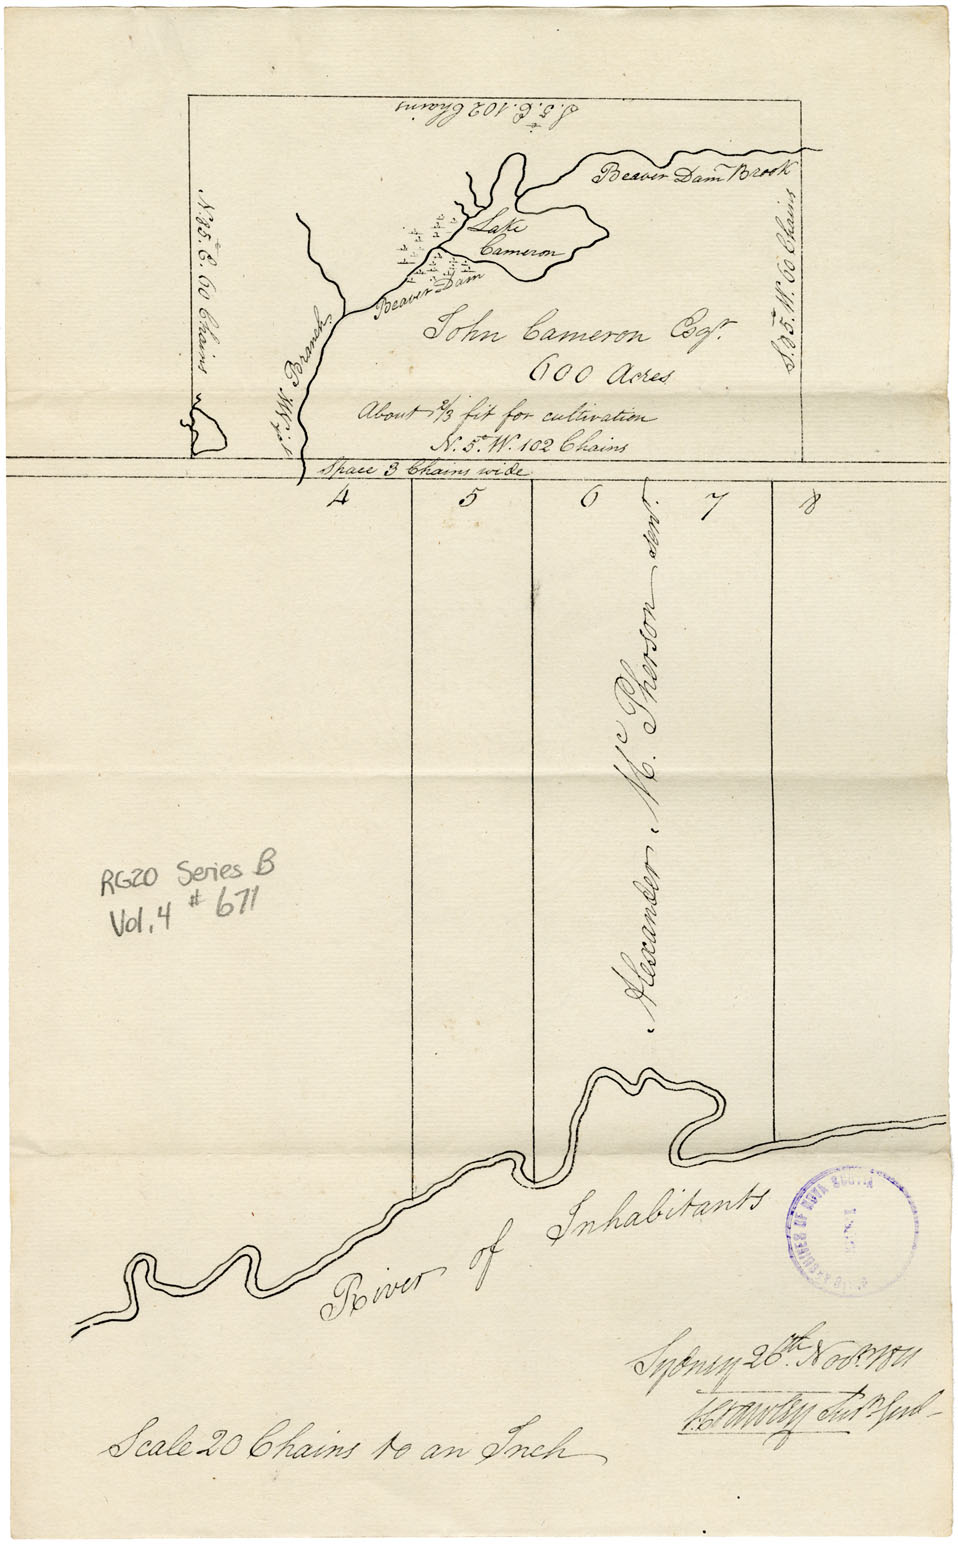 S. 5.° E. 102 Chains
Beaver Dam Brook
N. 85.° E. 60 Chains
S. 85.° W. 60 Chains
Lake
Cameron
Beaver Dam
N.W. Branch
John Cameron Esqr.
600 Acres
About 2/3 fit for cultivation
N. 5.° W. 102 Chains
Space 3 Chains wide
4 5 6 7 8
Alexander Mc. Pherson senr.
RG20 Series B
Vol. 4 # 671
River of Inhabitants
ARCHIVES OF NOVA SCOTIA
Sydney 26th. Novr. 1811
Crawley Survr. Genl
Scale 20 Chains to an Inch